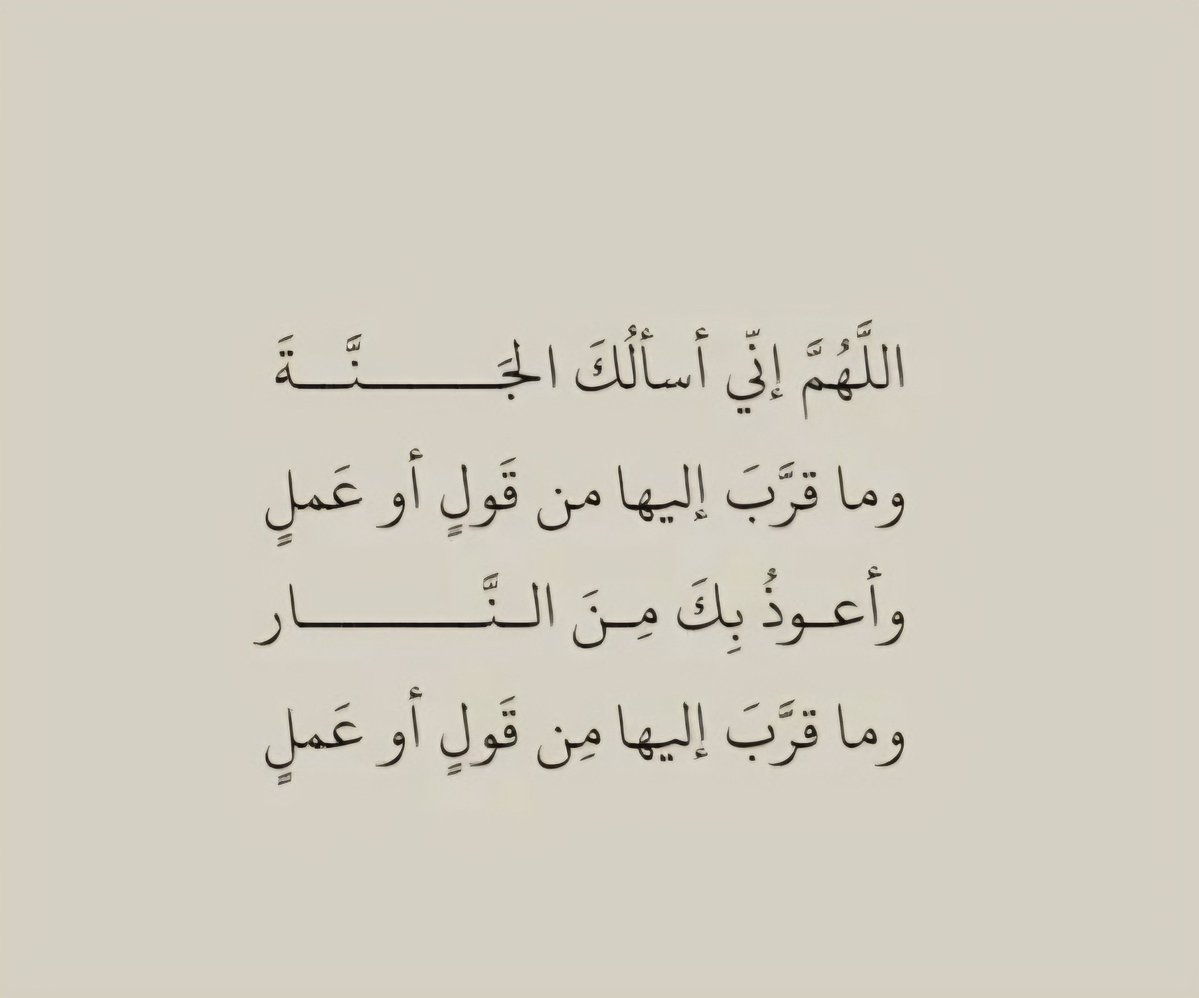 اللَّهُمَّ إنّي أسألُكَ الجَـــــــنَّـــةَ
وما قرَّبَ إليها من قَولٍ أو عَملٍ
وأعـوذُ بِكَ مِـنَ الـنَّـــــــــار
وما قرَّبَ إليها مِن قَولٍ أو عَملٍ